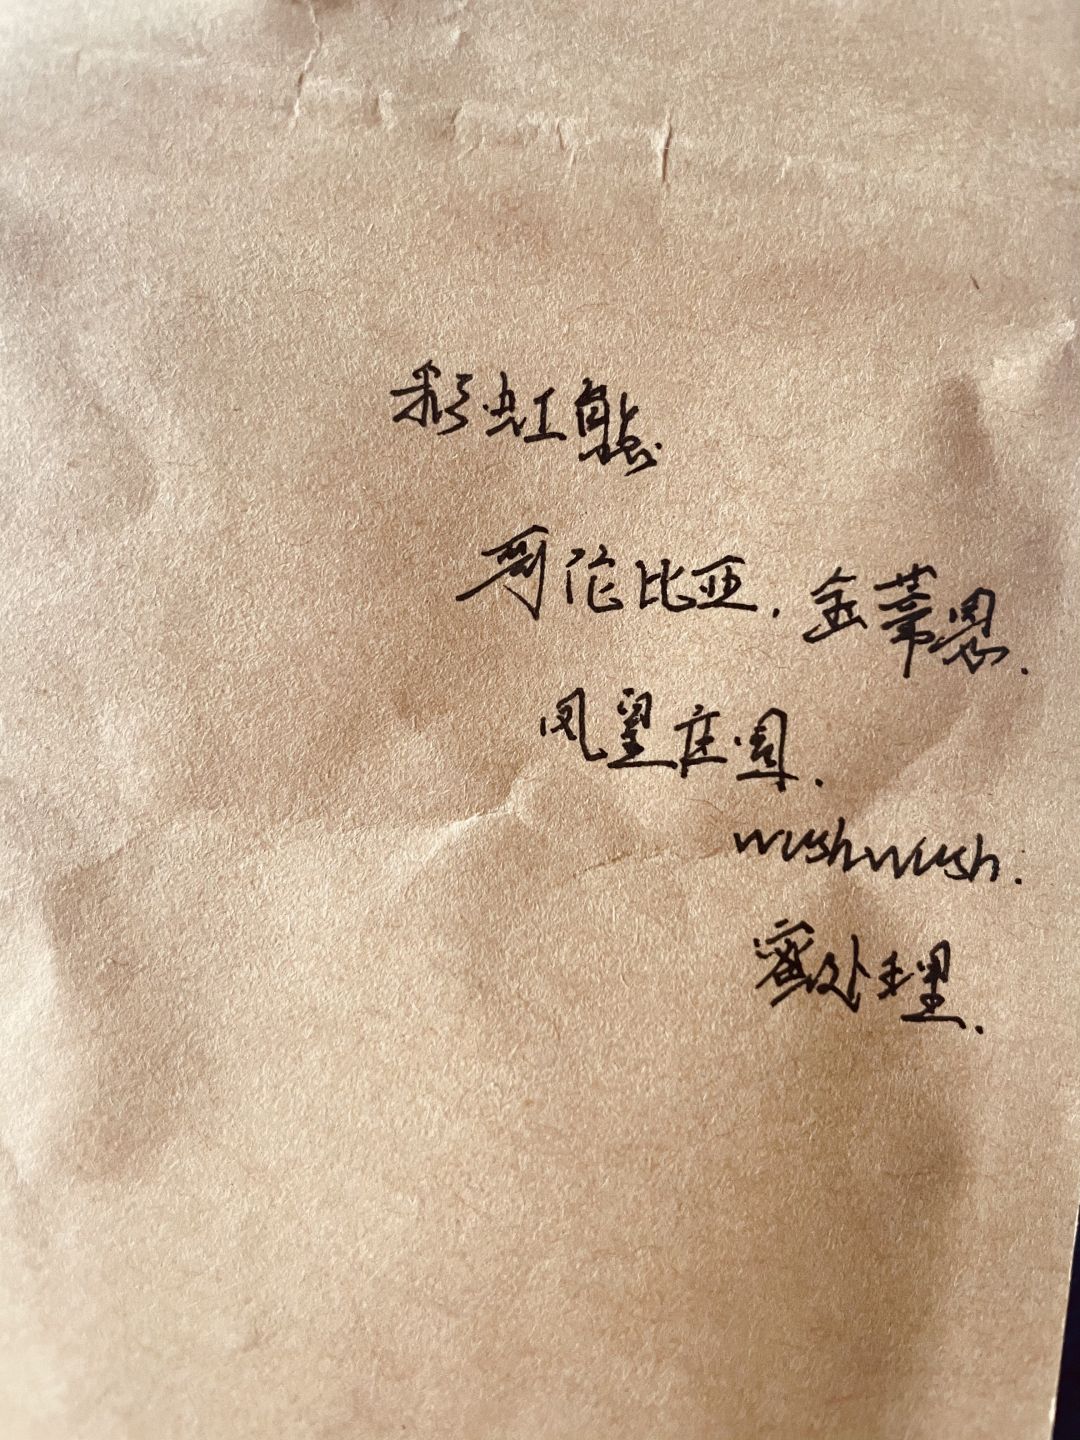 彩虹熊
哥伦比亚.金蒂恩.
凤望庄园.
wushwush.
蜜处理.